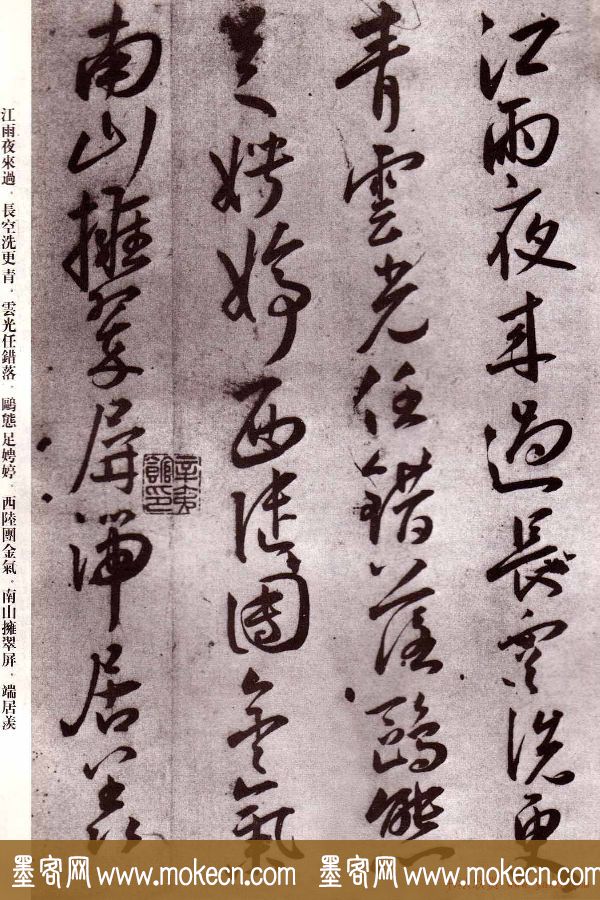 江雨夜来過長空洗更
青雲光任錯落鷗態
足娉婷西陸團金氣
南山擁翠屏端居羨
江雨夜來過．長空洗更青．雲光任錯落．鷗態足娉婷．西陸團金氣．南山擁翠屏．端居羨
墨客网 www.mokecn.com 墨客网 www.mokecn.com